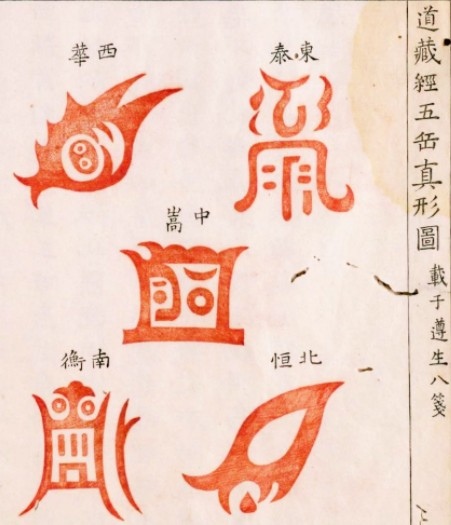 道藏經五岳真形圖
載于遵生八箋
東泰
西華
中嵩
北恒
南衡